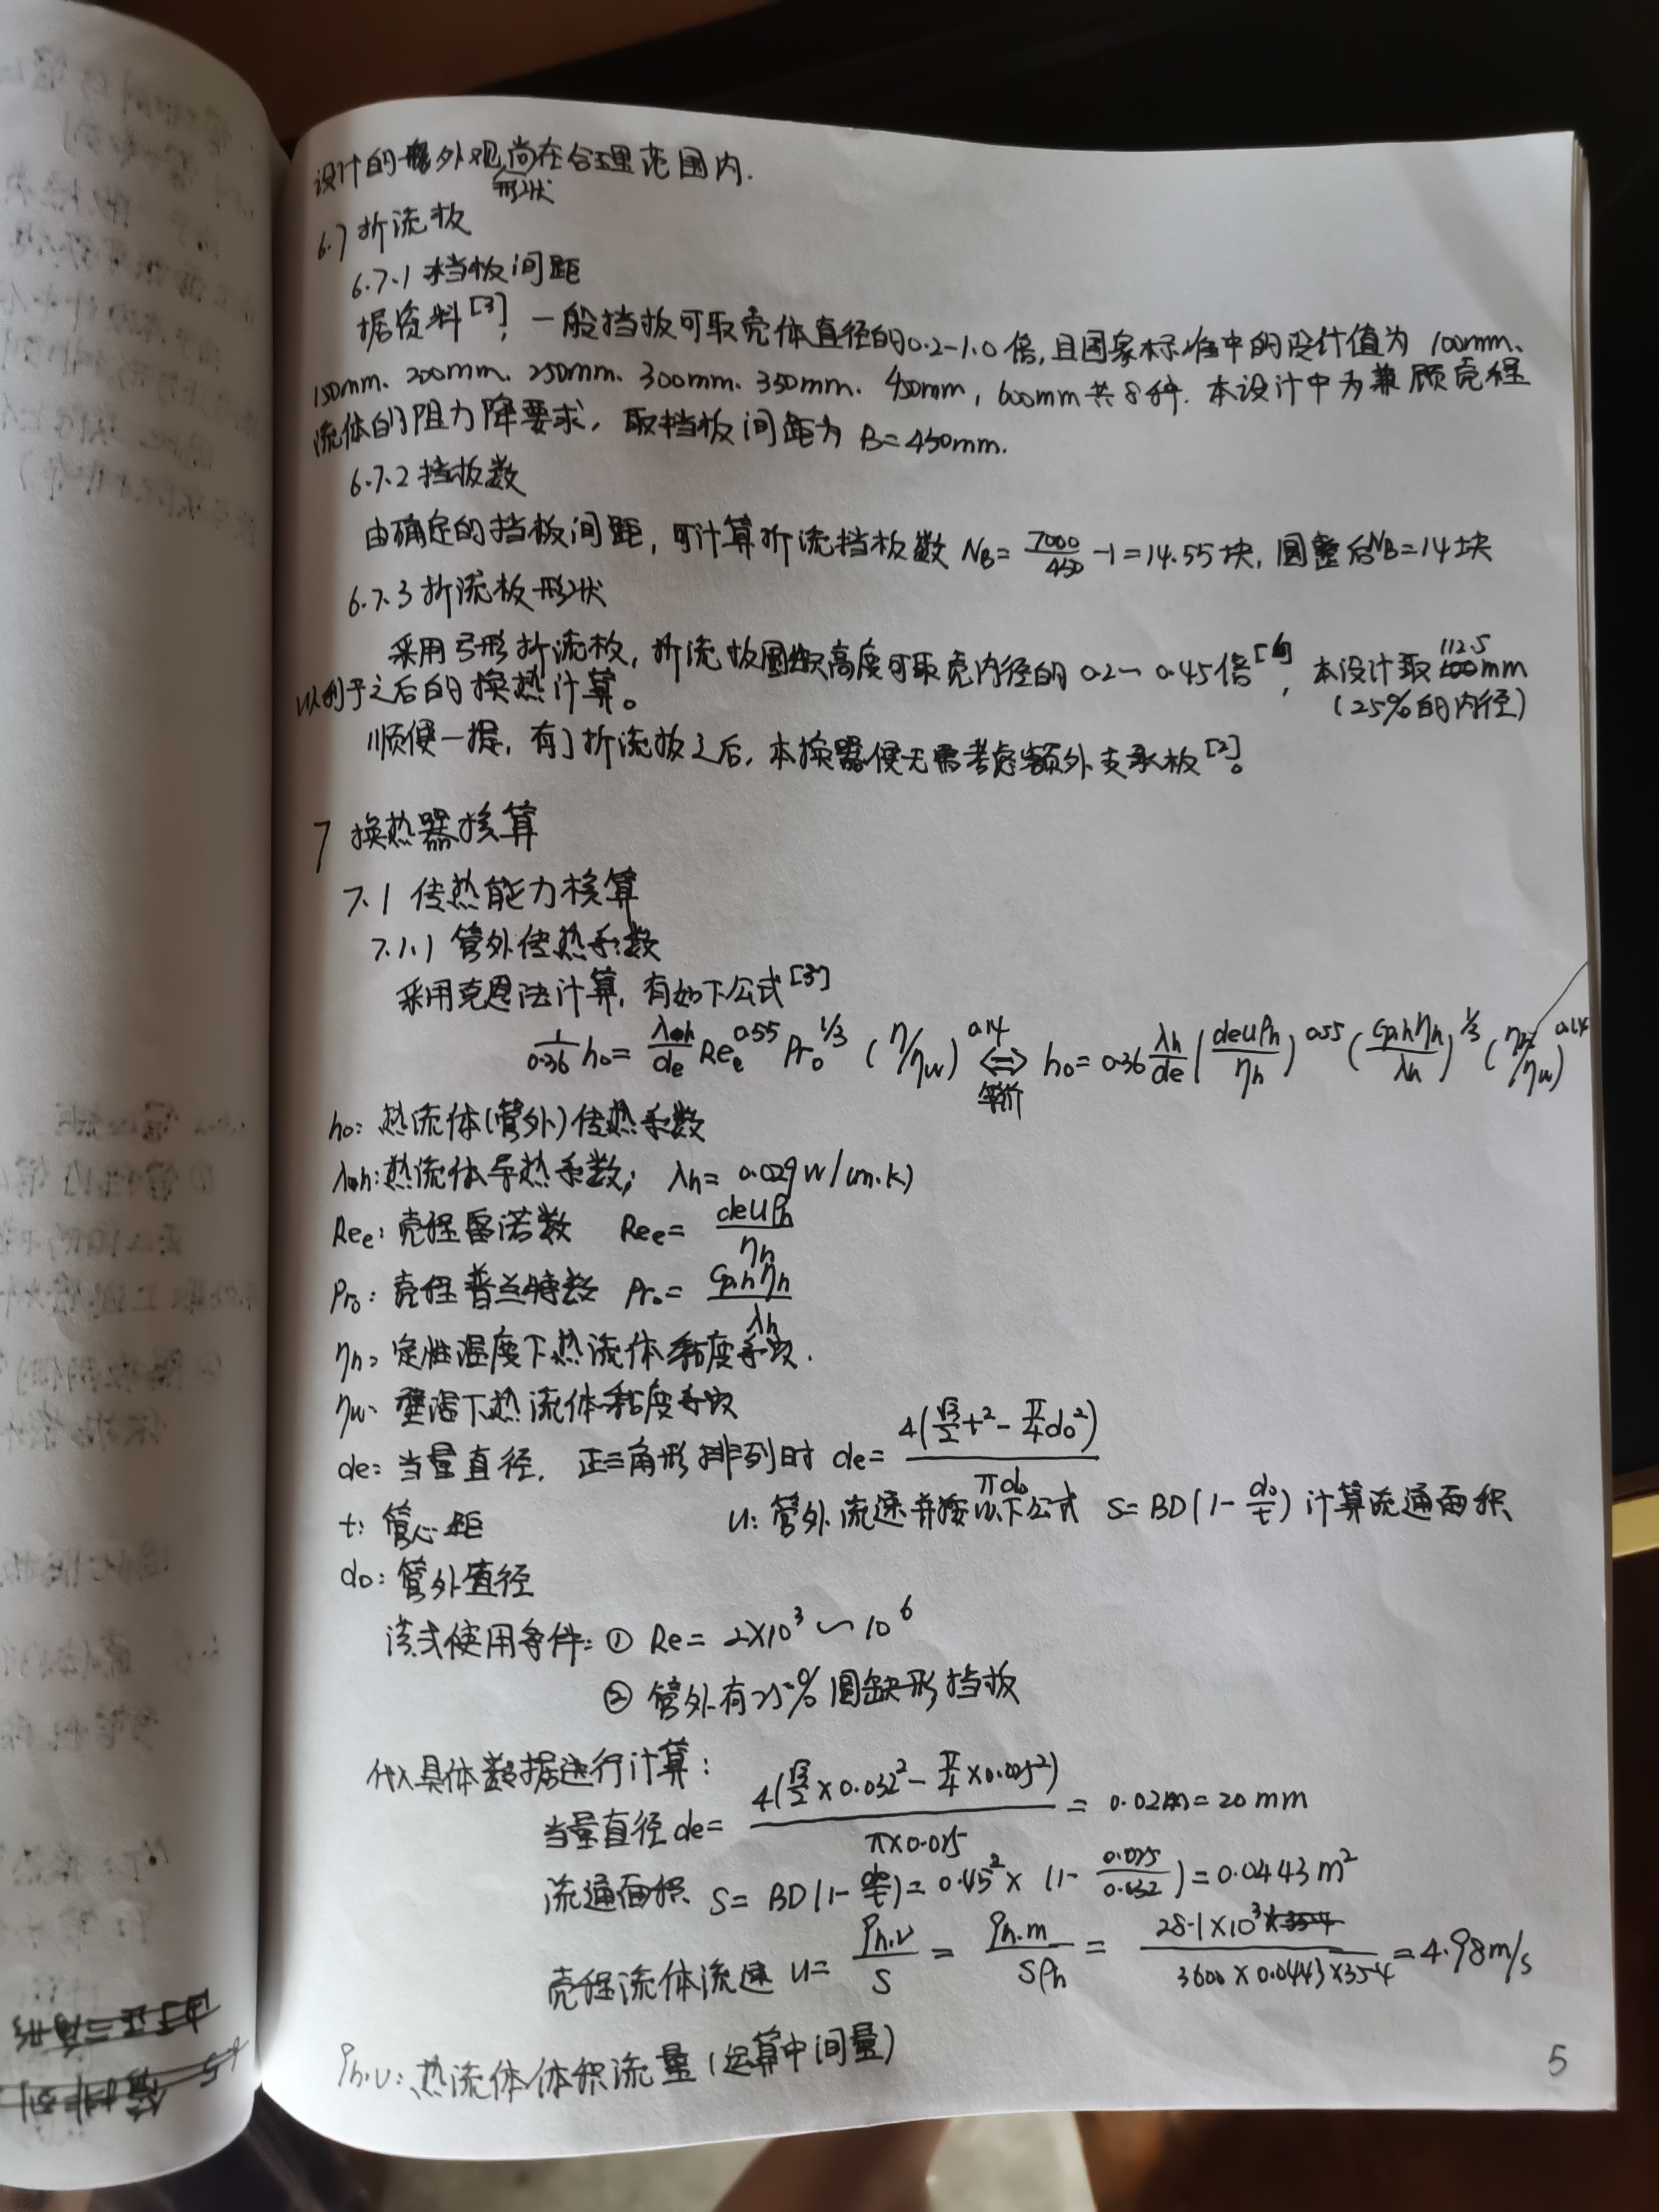 设计的外观形状尚在合理范围内.
6.7 折流板
6.7.1 挡板间距
据资料[3],一般挡板可取壳体直径的0.2-1.0倍,且国家标准中的设计值为 100mm、
150mm、200mm、250mm、300mm、350mm、450mm,600mm共8种.本设计中为兼顾壳程
流体的阻力降要求,取挡板间距为 B=450mm.
6.7.2 挡板数
由确定的挡板间距,可计算折流挡板数 N_B= 7000/450 -1=14.55块,圆整后N_B=14块
6.7.3 折流板形状
采用弓形折流板,折流板圆缺高度可取壳内径的 0.2~0.45倍[6],本设计取112.5mm
以利于之后的换热计算。 (25%的内径)
顺便一提,有了折流板之后,本换器便无需考虑额外支承板[2]。
7 换热器核算
7.1 传热能力核算
7.1.1 管外传热系数
采用克恩法计算,有如下公式[3]
1/0.36 h₀= λh/de Re_e^0.55 Pr₀^1/3 (η/ηw)^0.14 ⇔ 等价 h₀=0.36 λh/de (deuρh/ηh)^0.55 (Cp,hηh/λh)^1/3 (ηh/ηw)^0.14
h₀:热流体(管外)传热系数
λh:热流体导热系数; λh= 0.029W/(m.K)
Re_e:壳程雷诺数 Re_e= deuρh/ηh
Pr₀:壳程普兰特数 Pr₀= Cp,hηh/λh
ηh:定性温度下热流体粘度系数.
ηw:壁温下热流体粘度系数
de:当量直径,正三角形排列时 de= 4(√3/2 t²- π/4 d₀²)/πd₀
t:管心距 u:管外流速并按以下公式 S=BD(1- d₀/t) 计算流通面积
d₀:管外直径
该式使用条件:① Re= 2×10³~10⁶
② 管外有25%圆缺形挡板
代入具体数据进行计算:
当量直径de= 4(√3/2 ×0.032²- π/4 ×0.025²)/π×0.025 = 0.02m=20mm
流通面积 S= BD(1- d₀/t)=0.45²×(1- 0.025/0.032)=0.0443m²
壳程流体流速 u= qh.v/S = qh.m/Sρh = 28.1×10³/3600×0.0443×35.4 =4.98m/s
qh.v:热流体体积流量(运算中间量)
5